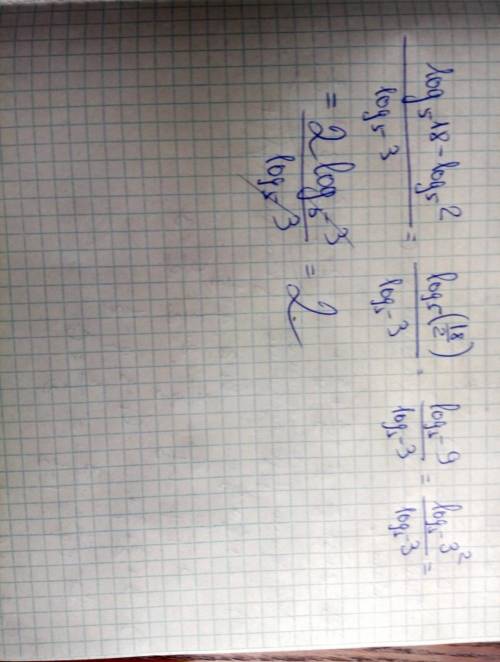 (log₅ 18 - log₅ 2) / (log₅ 3) = (log₅ (18/2)) / (log₅ 3) = (log₅ 9) / (log₅ 3) = (log₅ 3²) / (log₅ 3) =
= (2 log₅ 3) / (log₅ 3) = 2.